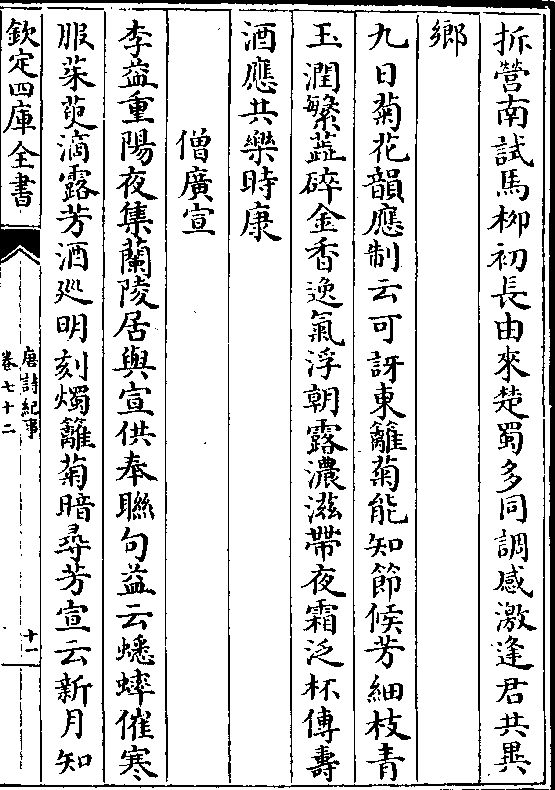 拆營南試馬栁初長由來楚蜀多同調感激逢君共異
鄉
九日菊花韻應制云可訝東籬菊能知節候芳細枝青
玉潤繁蘂碎金香逸氣浮朝露濃滋帶夜霜泛杯傳壽
酒應共樂時康
僧廣宣
李益重陽夜集蘭陵居與宣供奉聯句益云蟋蟀催寒
服茱萸滴露芳酒廵明刻燭籬菊暗尋芳宣云新月知
欽定四庫全書
唐詩紀事
卷七十二
十一